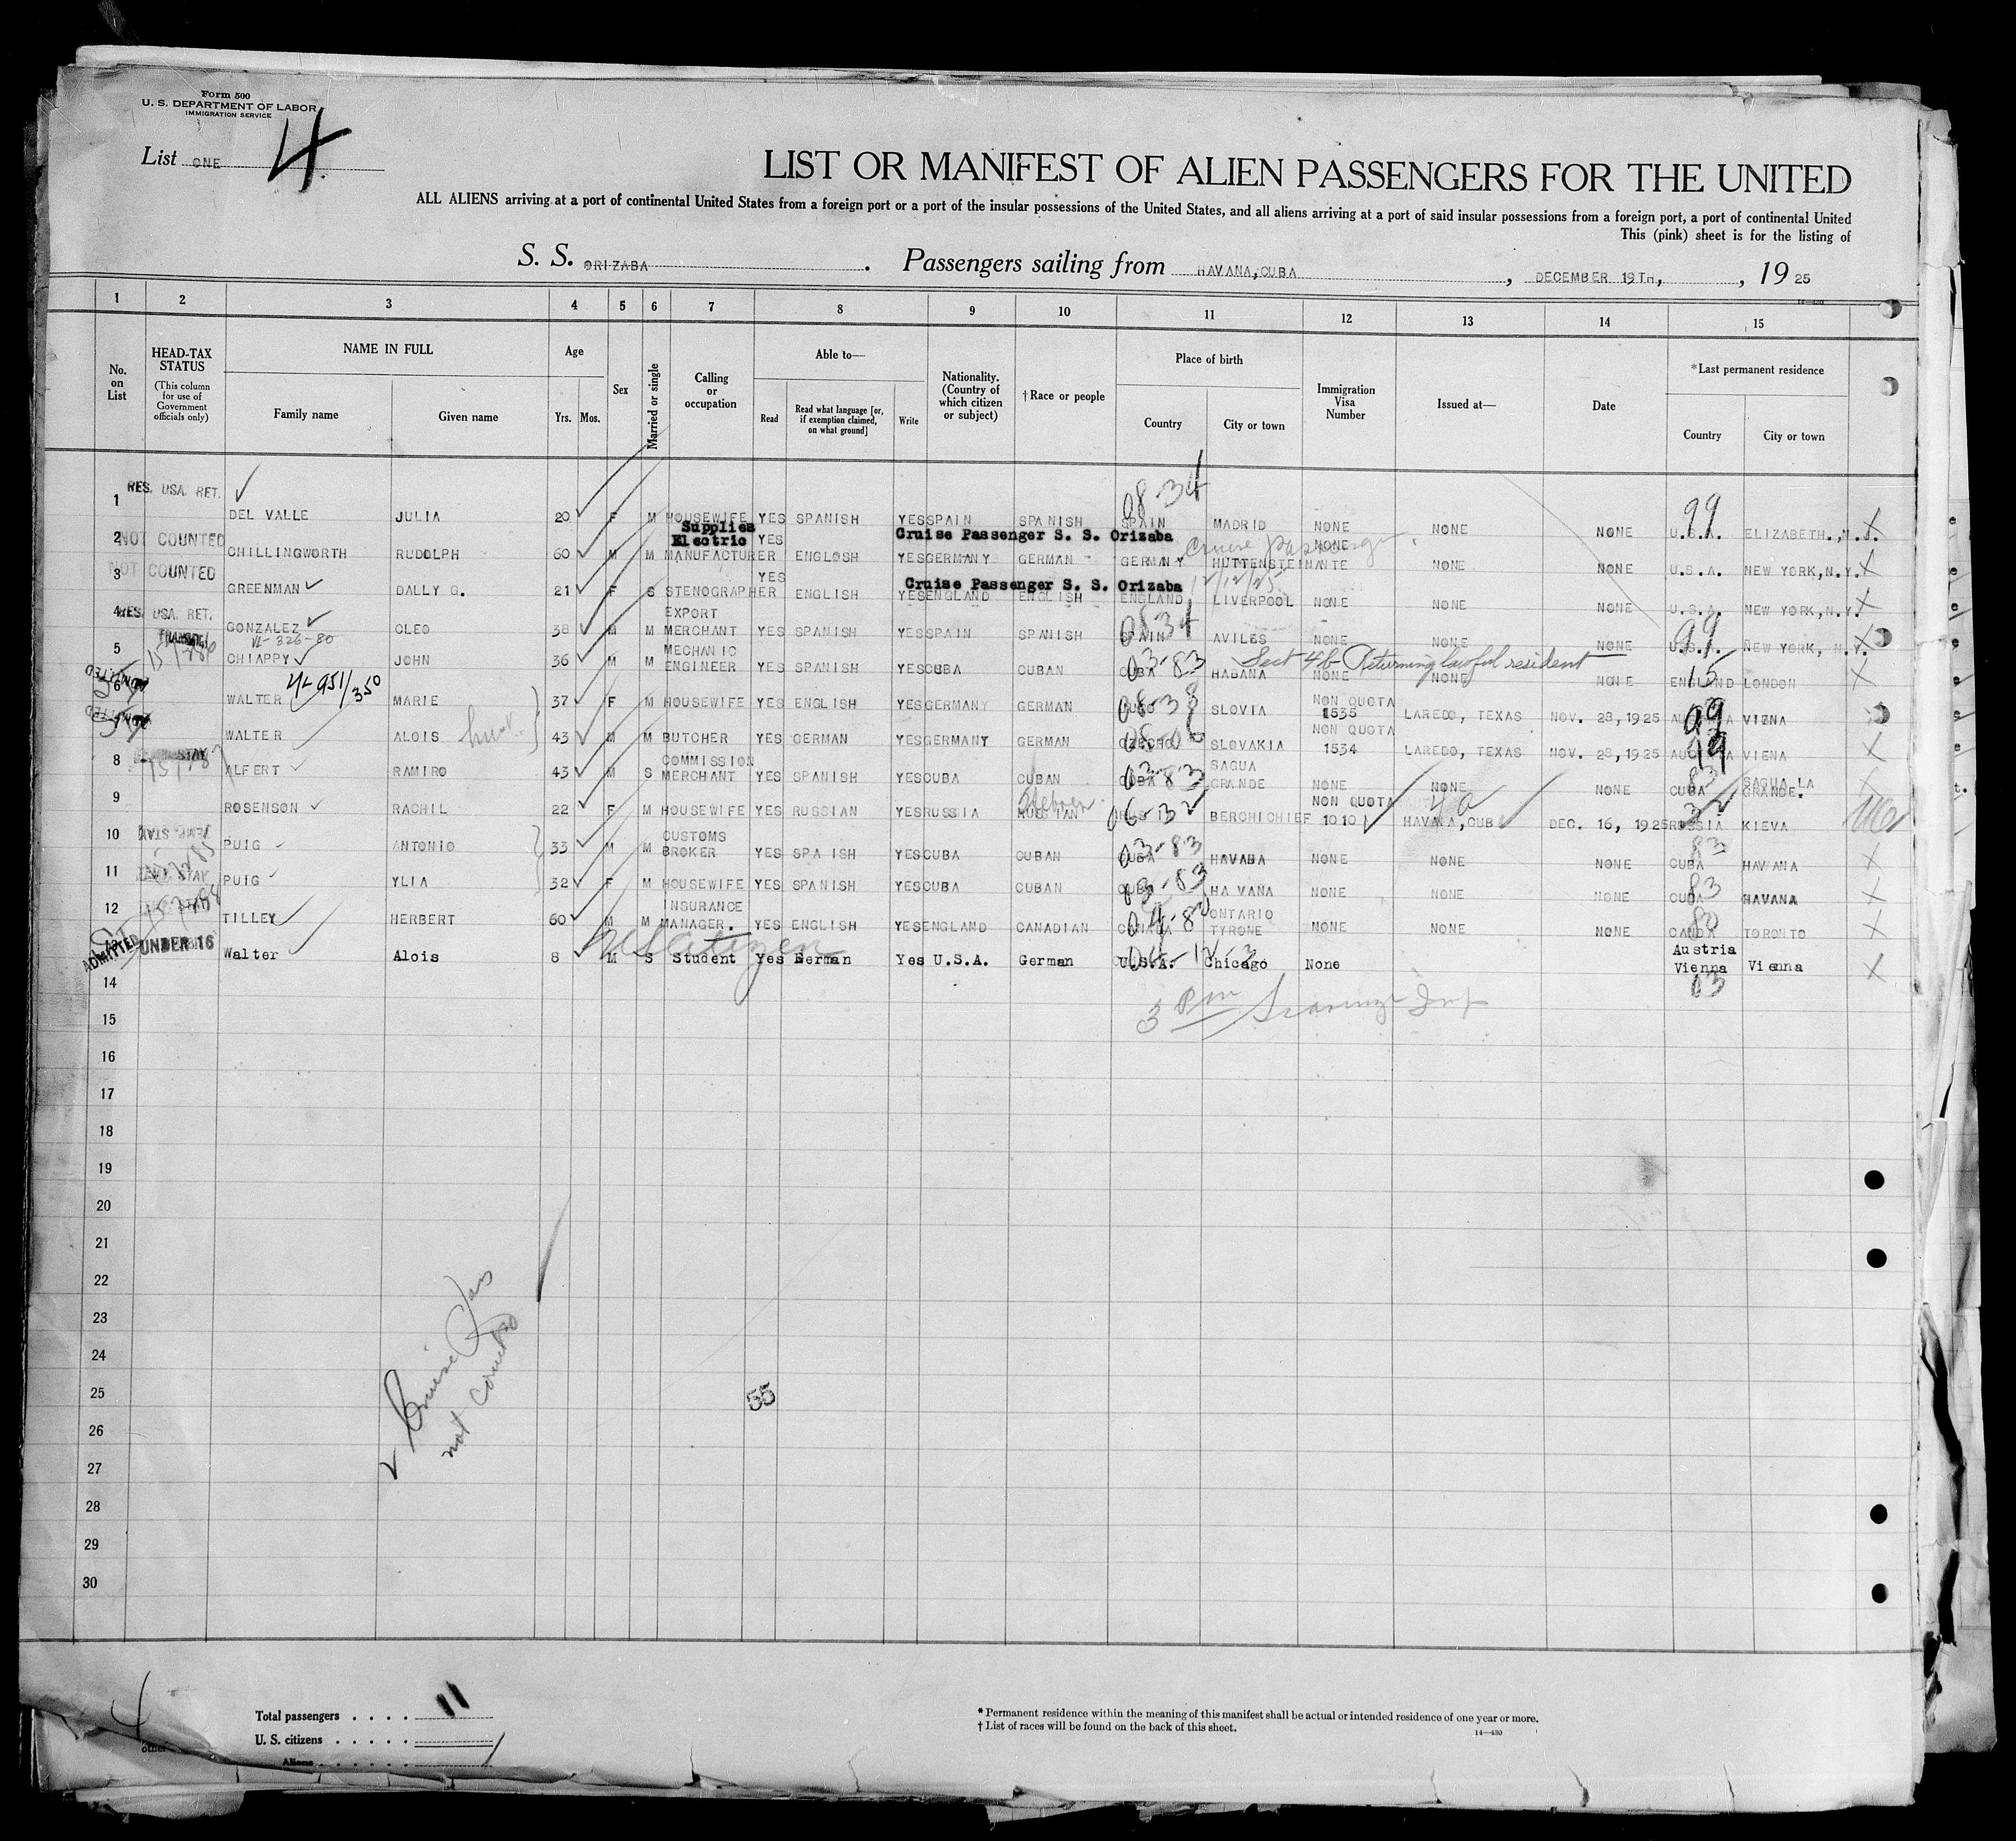 Form 500
U. S. DEPARTMENT OF LABOR
IMMIGRATION SERVICE
List ONE 4
LIST OR MANIFEST OF ALIEN PASSENGERS FOR THE UNITED
ALL ALIENS arriving at a port of continental United States from a foreign port or a port of the insular possessions of the United States, and all aliens arriving at a port of said insular possessions from a foreign port, a port of continental United
This (pink) sheet is for the listing of
S. S. ORIZABA. Passengers sailing from HAVANA,CUBA, DECEMBER 19TH,, 19 25
1 2 3 4 5 6 7 8 9 10 11 12 13 14 15
No. on List
HEAD-TAX STATUS (This column for use of Government officials only)
NAME IN FULL
Family name Given name
Age
Yrs. Mos.
Sex
Married or single
Calling or occupation
Able to—
Read Read what language [or, if exemption claimed, on what ground] Write
Nationality. (Country of which citizen or subject)
† Race or people
Place of birth
Country City or town
Immigration Visa Number
Issued at—
Date
*Last permanent residence
Country City or town
08-34 99
1 RES. USA. RET. DEL VALLE JULIA 20 F M HOUSEWIFE YES SPANISH YES SPAIN SPANISH SPAIN MADRID NONE NONE NONE U.S.A. ELIZABETH.,N.J.
Supplies
Electric YES Cruise Passenger S. S. Orizaba
2 NOT COUNTED CHILLINGWORTH RUDOLPH 60 M M MANUFACTURER ENGLOSH YES GERMANY GERMAN GERMANY HUTTENSTEINANTE NONE NONE NONE U.S.A. NEW YORK,N.Y.
Cruise Passenger
12/12/25
YES Cruise Passenger S. S. Orizaba
3 NOT COUNTED GREENMAN DALLY G. 21 F S STENOGRAPHER ENGLISH YES ENGLAND ENGLISH ENGLAND LIVERPOOL NONE NONE NONE U.S.A. NEW YORK,N.Y.
EXPORT 0834 99
4 RES. USA. RET. GONZALEZ CLEO 38 M M MERCHANT YES SPANISH YES SPAIN SPANISH SPAIN AVILES NONE NONE NONE U.S.A. NEW YORK, N.Y.
VL-326-80
MECHANIC 03-83 Sect 4b Returning lawful resident 15
5 CHIAPPY JOHN 36 M M ENGINEER YES SPANISH YES CUBA CUBAN CUBA HABANA NONE NONE NONE ENGLAND LONDON
951/350
6 WALTER MARIE 37 F M HOUSEWIFE YES ENGLISH YES GERMANY GERMAN SLOVIA NON QUOTA 1535 LAREDO, TEXAS NOV. 28,1925 VIENA
WALTER ALOIS 43 M M BUTCHER YES GERMAN YES GERMANY GERMAN SLOVAKIA NON QUOTA 1534 LAREDO, TEXAS NOV. 28,1925 VIENA
COMMISSION 03-83 SAGUA 83 SAGUA LA
8 ALFERT RAMIRO 43 M S MERCHANT YES SPANISH YES CUBA CUBAN CUBA GRANDE NONE NONE NONE CUBA GRANDE.
Hebrew 06-32 NON QUOTA 4a 32
9 ROSENSON RACHIL 22 F M HOUSEWIFE YES RUSSIAN YES RUSSIA RUSSIAN BERCHICHIEF 1010 HAVANA,CUBA DEC. 16, 1925 RUSSIA KIEVA
CUSTOMS 03-83 83
10 TEMP. STAY PUIG ANTONIO 33 M M BROKER YES SPA ISH YES CUBA CUBAN CUBA HAVABA NONE NONE NONE CUBA HAVANA
03-83 83
11 STAY PUIG YLIA 32 F M HOUSEWIFE YES SPANISH YES CUBA CUBAN CUBA HA VANA NONE NONE NONE CUBA HAVANA
INSURANCE 04-80 ONTARIO 80
12 TILLEY HERBERT 60 M M MANAGER. YES ENGLISH YES ENGLAND CANADIAN CANADA TYRONE NONE NONE NONE CANDA TORONTO
US Citizen
ADMITTED UNDER 16 Walter Alois 8 M S Student Yes German Yes U.S.A. German U.S.A. Chicago None Austria Vienna Vienna
03
14
3 Pm
15
16
17
18
19
20
21
22
23
24
25 55
26
27
28
29
30
2 Cruise Pas
not counted
Total passengers . . . . 11
U. S. citizens . . . . .
Aliens . . . . . . 1
other
* Permanent residence within the meaning of this manifest shall be actual or intended residence of one year or more.
† List of races will be found on the back of this sheet.
14—430